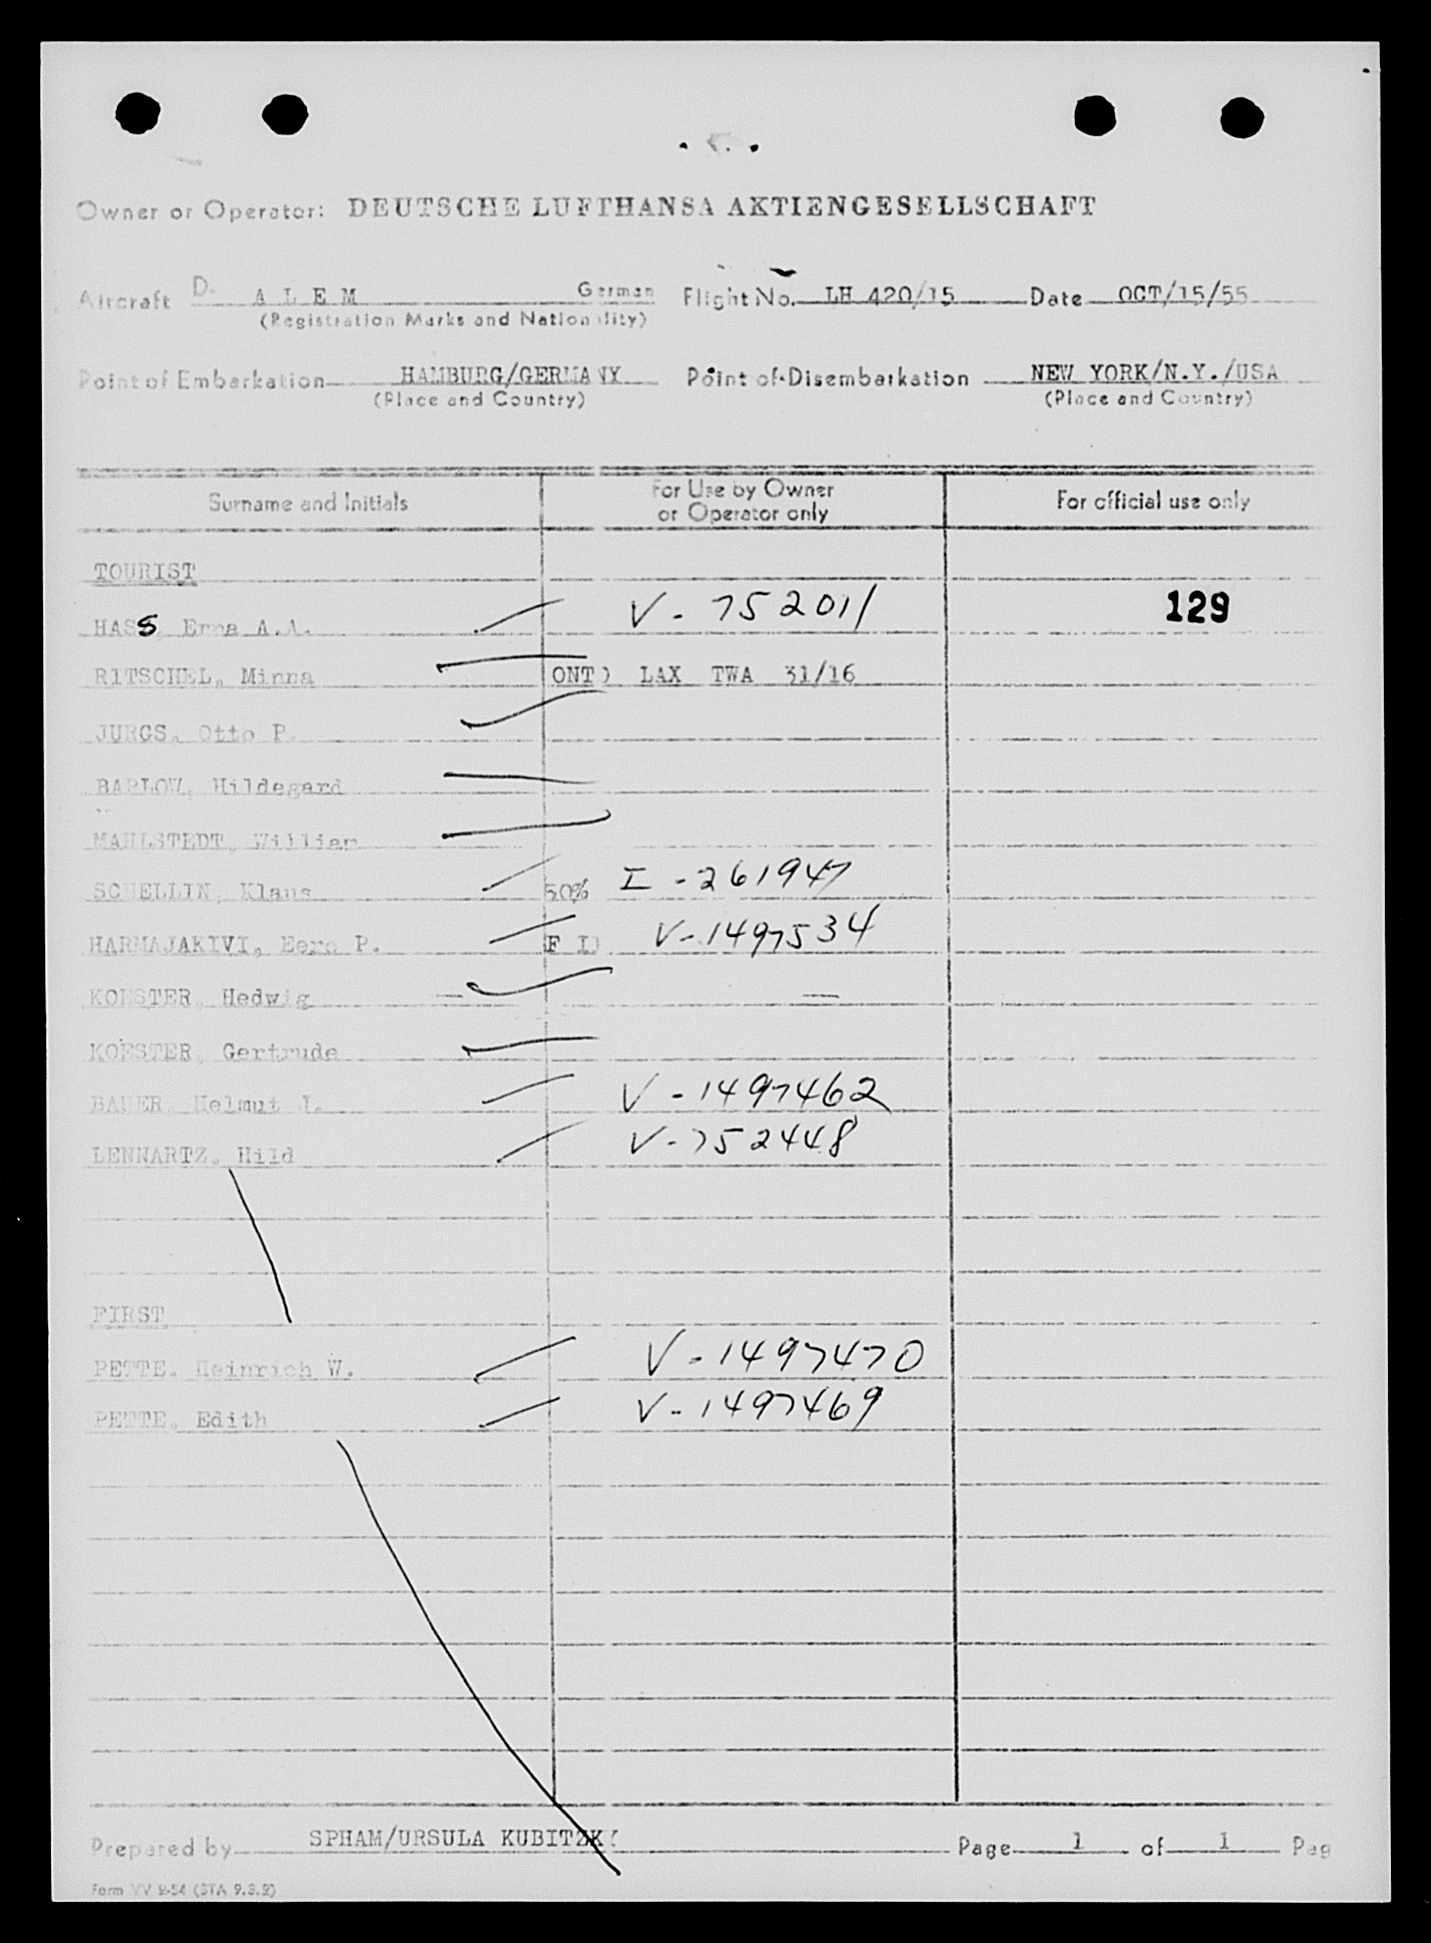 Owner or Operator: DEUTSCHE LUFTHANSA AKTIENGESELLSCHAFT
Aircraft D- A L E M German Flight No. LH 420/15 Date OCT/15/55
(Registration Marks and Nationality)
Point of Embarkation HAMBURG/GERMANY Point of Disembarkation NEW YORK/N.Y./USA
(Place and Country) (Place and Country)
Surname and Initials For Use by Owner or Operator only For official use only
TOURIST
HASS, Erna A.A. V-752011 129
RITSCHEL, Minna ONTO LAX TWA 31/16
JURGS, Otto P.
BARLOW, Hildegard
MAHLSTEDT, William
SCHELLIN, Klaus 50% I-261947
HARMAJAKIVI, Eero P. V-1497534
KOESTER, Hedwig
KOESTER, Gertrude
BAUER, Helmut J. V-1497462
LENNARTZ, Hild V-752448
FIRST
PETTE, Heinrich W. V-1497470
PETTE, Edith V-1497469
Prepared by SPHAM/URSULA KUBITZKY Page 1 of 1 Pag
Form VV 2-54 (STA 9.3.2)